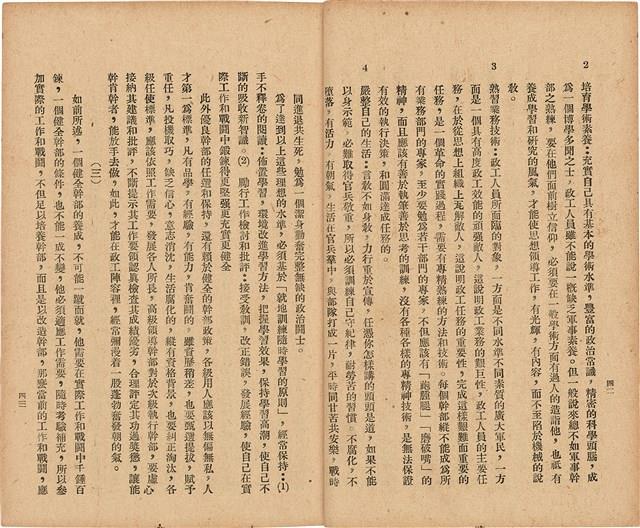 四二
2 培育學術素養:充實自己具有基本的學術水準,豐富的政治常識,精密的科學頭腦,成
為一個博學多聞之士,政工人員雖不能說一概缺乏軍事素養。但一般說來總不如軍事幹
部之熟練,要在他們面前樹立信仰,必須要在一般學術方面有過人的造詣他,也祇有
養成學習和研究的風氣,才能使思想領導工作,有光輝,有內容,而不至陷於機械的說
教。
3 熟習業務技術:政工人員所面臨的對象,一方面是不同水準不同素質的廣大軍民,一方
面是一個具有高度政工效能的頑強敵人,這說明政工業務的艱巨性,政工人員的主要任
務,在於從思想上組織上瓦解敵人,這說明政工任務的重要性,完成這樣艱難而重要的
任務,是一個革命的實踐過程,需要有專精熟練的方法和技術。每個幹部縱不能成為所
有業務部門的專家,至少要勉為若干部門的專家,不但應該有「跑腿」「磨破嘴」的
精神,而且應該有善於執筆善於思考的訓練,沒有各種各樣的專精神技術,是無法保證
有效的執行決策,和圓滿達成任務的。
4 嚴整自己的生活:言教不如身教,力行重於宣傳,任憑你怎樣講的頭頭是道,如果不能
以身示範,必難取得官兵敬重,所以必須訓練自己守紀律,耐勞苦的習慣。不腐化,不
墮落,有活力,有朝氣,生活在官兵羣中,與部隊打成一片,平時同甘苦共安樂,戰時
同進退共生死。勉為一個潔身勤奮完整無缺的政治鬪士。
為了達到以上這些理想的水準,必須基於「就地訓練隨時學習的原則」,經常保持:(1)
手不釋卷的閱讀:佈置學習,環境改進學習方法,把握學習效果,保持學習高潮,使自己不
斷的吸收新智識。(2)勵行工作檢討和批評:接受教訓,改正錯誤,發展經驗,使自己在實
際工作和戰鬪中鍛鍊得更堅强更充實更健全
此外優良幹部的任選和保持,還有賴於健全的幹部政策,各級用人應該以無偏無私,人
才第一為標準,凡有品學,有經驗,有能力,肯奮鬪的。雖資歷稍差,也要甄選提拔,賦予
重任,凡投機取巧,缺乏信心,意志消沈,生活腐化的,縱有資格背景,也要糾正淘汰,各
級任使標準,應該依照工作需要,發展各人所長,高級領導幹部對於次級執行幹部,要虛心
接納其建議和批評,不斷提示其工作要領認真檢查其成績優劣,合理評定其功過獎懲,讓能
幹肯幹者,能放手去做,如此,才能在政工陣容裡,經常瀰漫着一股蓬勃奮發朝的氣。
(三)
如前所述,一個健全幹部的養成,不可能一蹴而就,他需要在實際工作和戰鬪中千錘百
鍊,一個健全幹部的條件,也不能一成不變,他必須適應工作需要,隨時考驗補充,所以參
加實際的工作和戰鬪,不但足以培養幹部,而且是以改造幹部,那麼當前的工作和戰鬪,應
四三